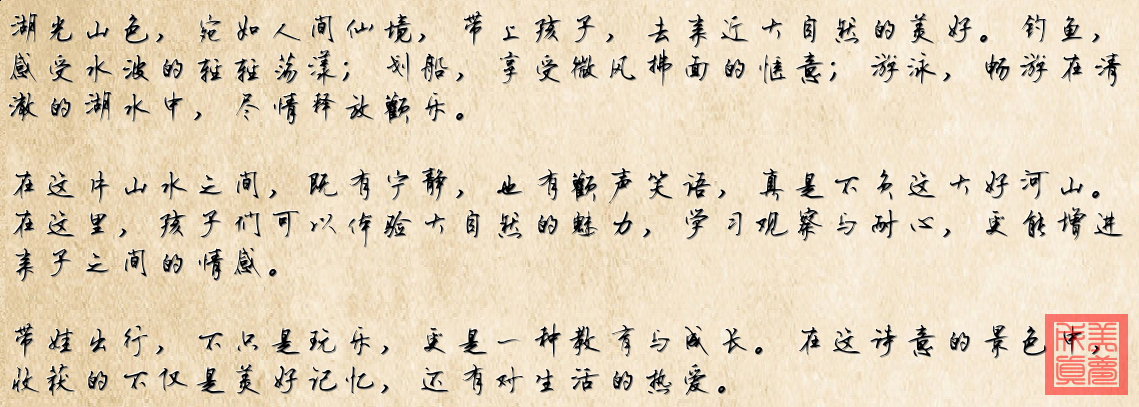 湖光山色，宛如人间仙境，带上孩子，去亲近大自然的美好。钓鱼，
感受水波的轻轻荡漾；划船，享受微风拂面的惬意；游泳，畅游在清
澈的湖水中，尽情释放颧乐。
在这片山水之间，既有宁静，也有颧声笑语，真是不负这大好河山。
在这里，孩子们可以体验大自然的魅力，学习观察与耐心，更能增进
亲子之间的情感。
带娃出行，不只是玩乐，更是一种教育与成长。在这诗意的景色中，
收获的不仅是美好记忆，还有对生活的热爱。
美梦成真